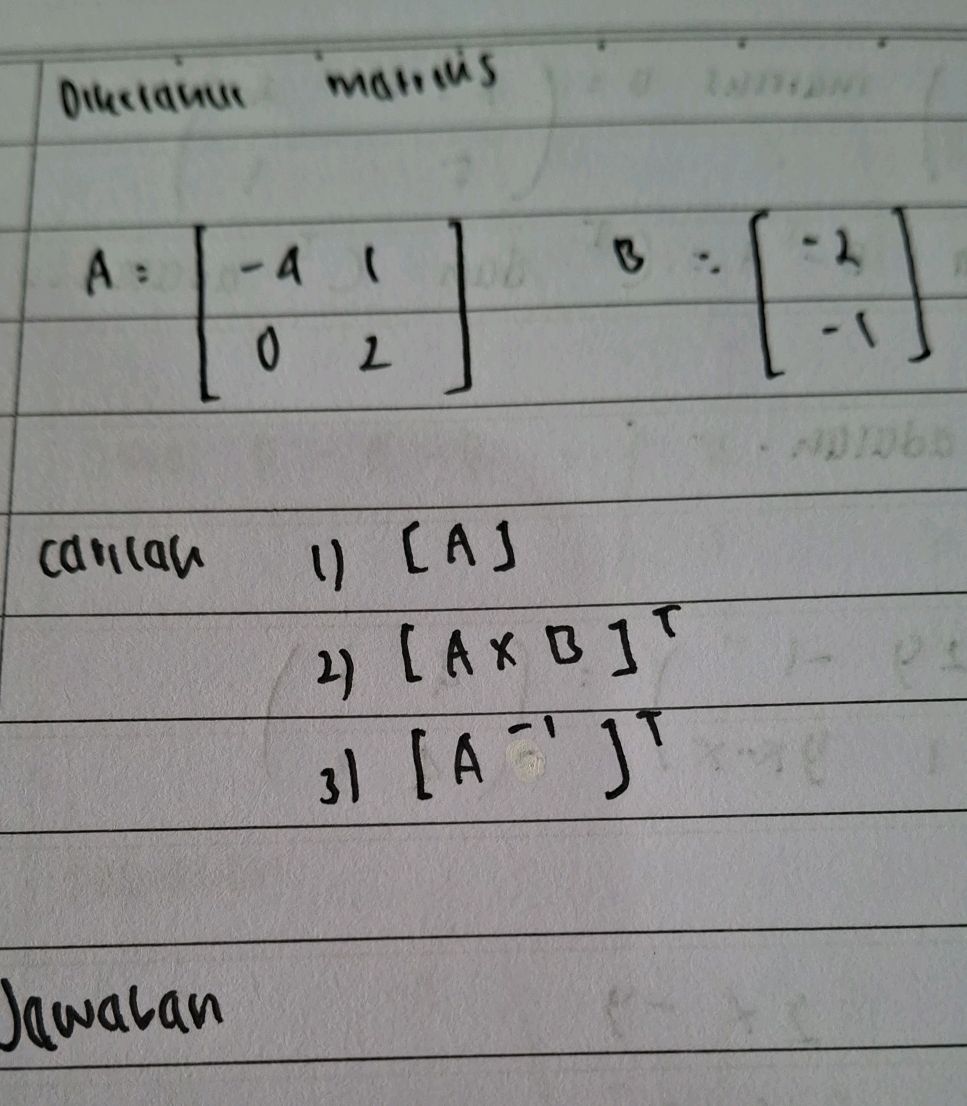 Diketahui matriks
A = [ -4 1 ] B = [ -2 ]
[ 0 2 ] [ -1 ]
carilah 1) [A]
2) [A x B]ᵀ
3) [A⁻¹]ᵀ
Jawaban